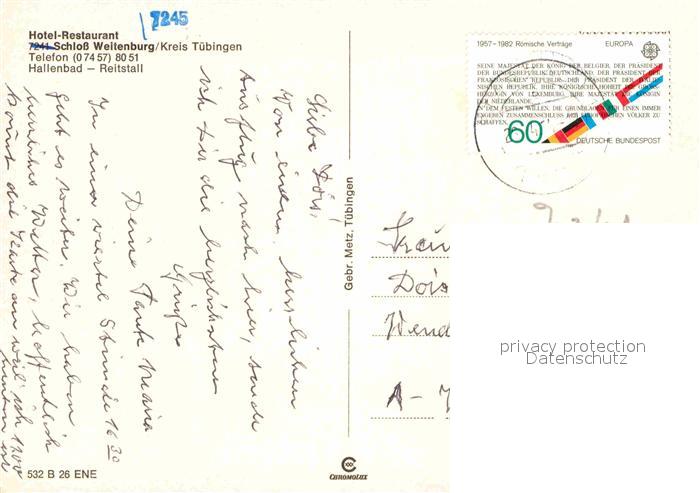 7245
Hotel-Restaurant
7241 Schloß Weitenburg/Kreis Tübingen
Telefon (07457) 8051
Hallenbad – Reitstall
Liebe Dois!
Von einem herrlichen
Ausflug nach hier, sende
ich Dir die herzlichsten
Grüße
Deine Tante Maria
In einer viertel Stunde 16 30
geht es weiter. Wir haben
herrliches Wetter, hoffentlich
kommt die Karte an weil ich
532 B 26 ENE
Gebr. Metz, Tübingen
CHROMOLUX
1957–1982 Römische Verträge EUROPA
SEINE MAJESTÄT DER KÖNIG DER BELGIER, DER PRÄSIDENT
DER BUNDESREPUBLIK DEUTSCHLAND, DER PRÄSIDENT DER
FRANZÖSISCHEN REPUBLIK, DER PRÄSIDENT DER ITALIE-
NISCHEN REPUBLIK, IHRE KÖNIGLICHE HOHEIT DIE GROSS-
HERZOGIN VON LUXEMBURG, IHRE MAJESTÄT DIE KÖNIGIN
DER NIEDERLANDE,
IN DEM FESTEN WILLEN, DIE GRUNDLAGEN FÜR EINEN IMMER
ENGEREN ZUSAMMENSCHLUSS DER EUROPÄISCHEN VÖLKER ZU
SCHAFFEN,
60
DEUTSCHE BUNDESPOST
Frau
Dois
Wend
A-
privacy protection
Datenschutz